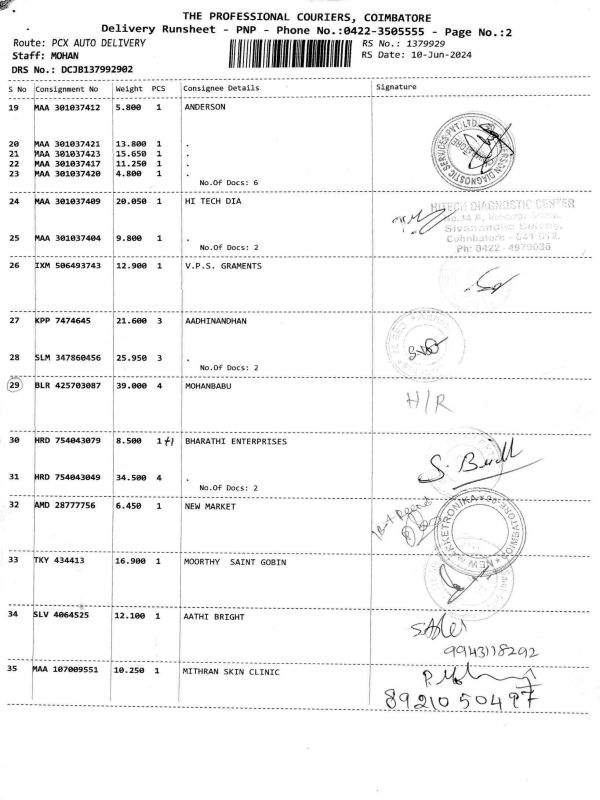 THE PROFESSIONAL COURIERS, COIMBATORE
Delivery Runsheet - PNP - Phone No.:0422-3505555 - Page No.:2
Route: PCX AUTO DELIVERY RS No.: 1379929
Staff: MOHAN RS Date: 10-Jun-2024
DRS No.: DCJB137992902
S No Consignment No Weight PCS Consignee Details Signature
19 MAA 301037412 5.800 1 ANDERSON
20 MAA 301037421 13.800 1 .
21 MAA 301037423 15.650 1 .
22 MAA 301037417 11.250 1 .
23 MAA 301037420 4.800 1 .
No.Of Docs: 6
24 MAA 301037409 20.050 1 HI TECH DIA
HITECH DIAGNOSTIC CENTER
25 MAA 301037404 9.800 1 .
Coimbatore - 641 012.
No.Of Docs: 2
Ph: 0422 - 4979036
26 IXM 506493743 12.900 1 V.P.S. GRAMENTS
27 KPP 7474645 21.600 3 AADHINANDHAN
28 SLM 347860456 25.950 3 .
No.Of Docs: 2
29 BLR 425703087 39.000 4 MOHANBABU
H/R
30 HRD 754043079 8.500 1 BHARATHI ENTERPRISES
31 HRD 754043049 34.500 4 .
No.Of Docs: 2
32 AMD 28777756 6.450 1 NEW MARKET
NEW MARKETRONIKA
33 TKY 434413 16.900 1 MOORTHY SAINT GOBIN
34 SLV 4064525 12.100 1 AATHI BRIGHT
9943118292
35 MAA 107009551 10.250 1 MITHRAN SKIN CLINIC
8921050497